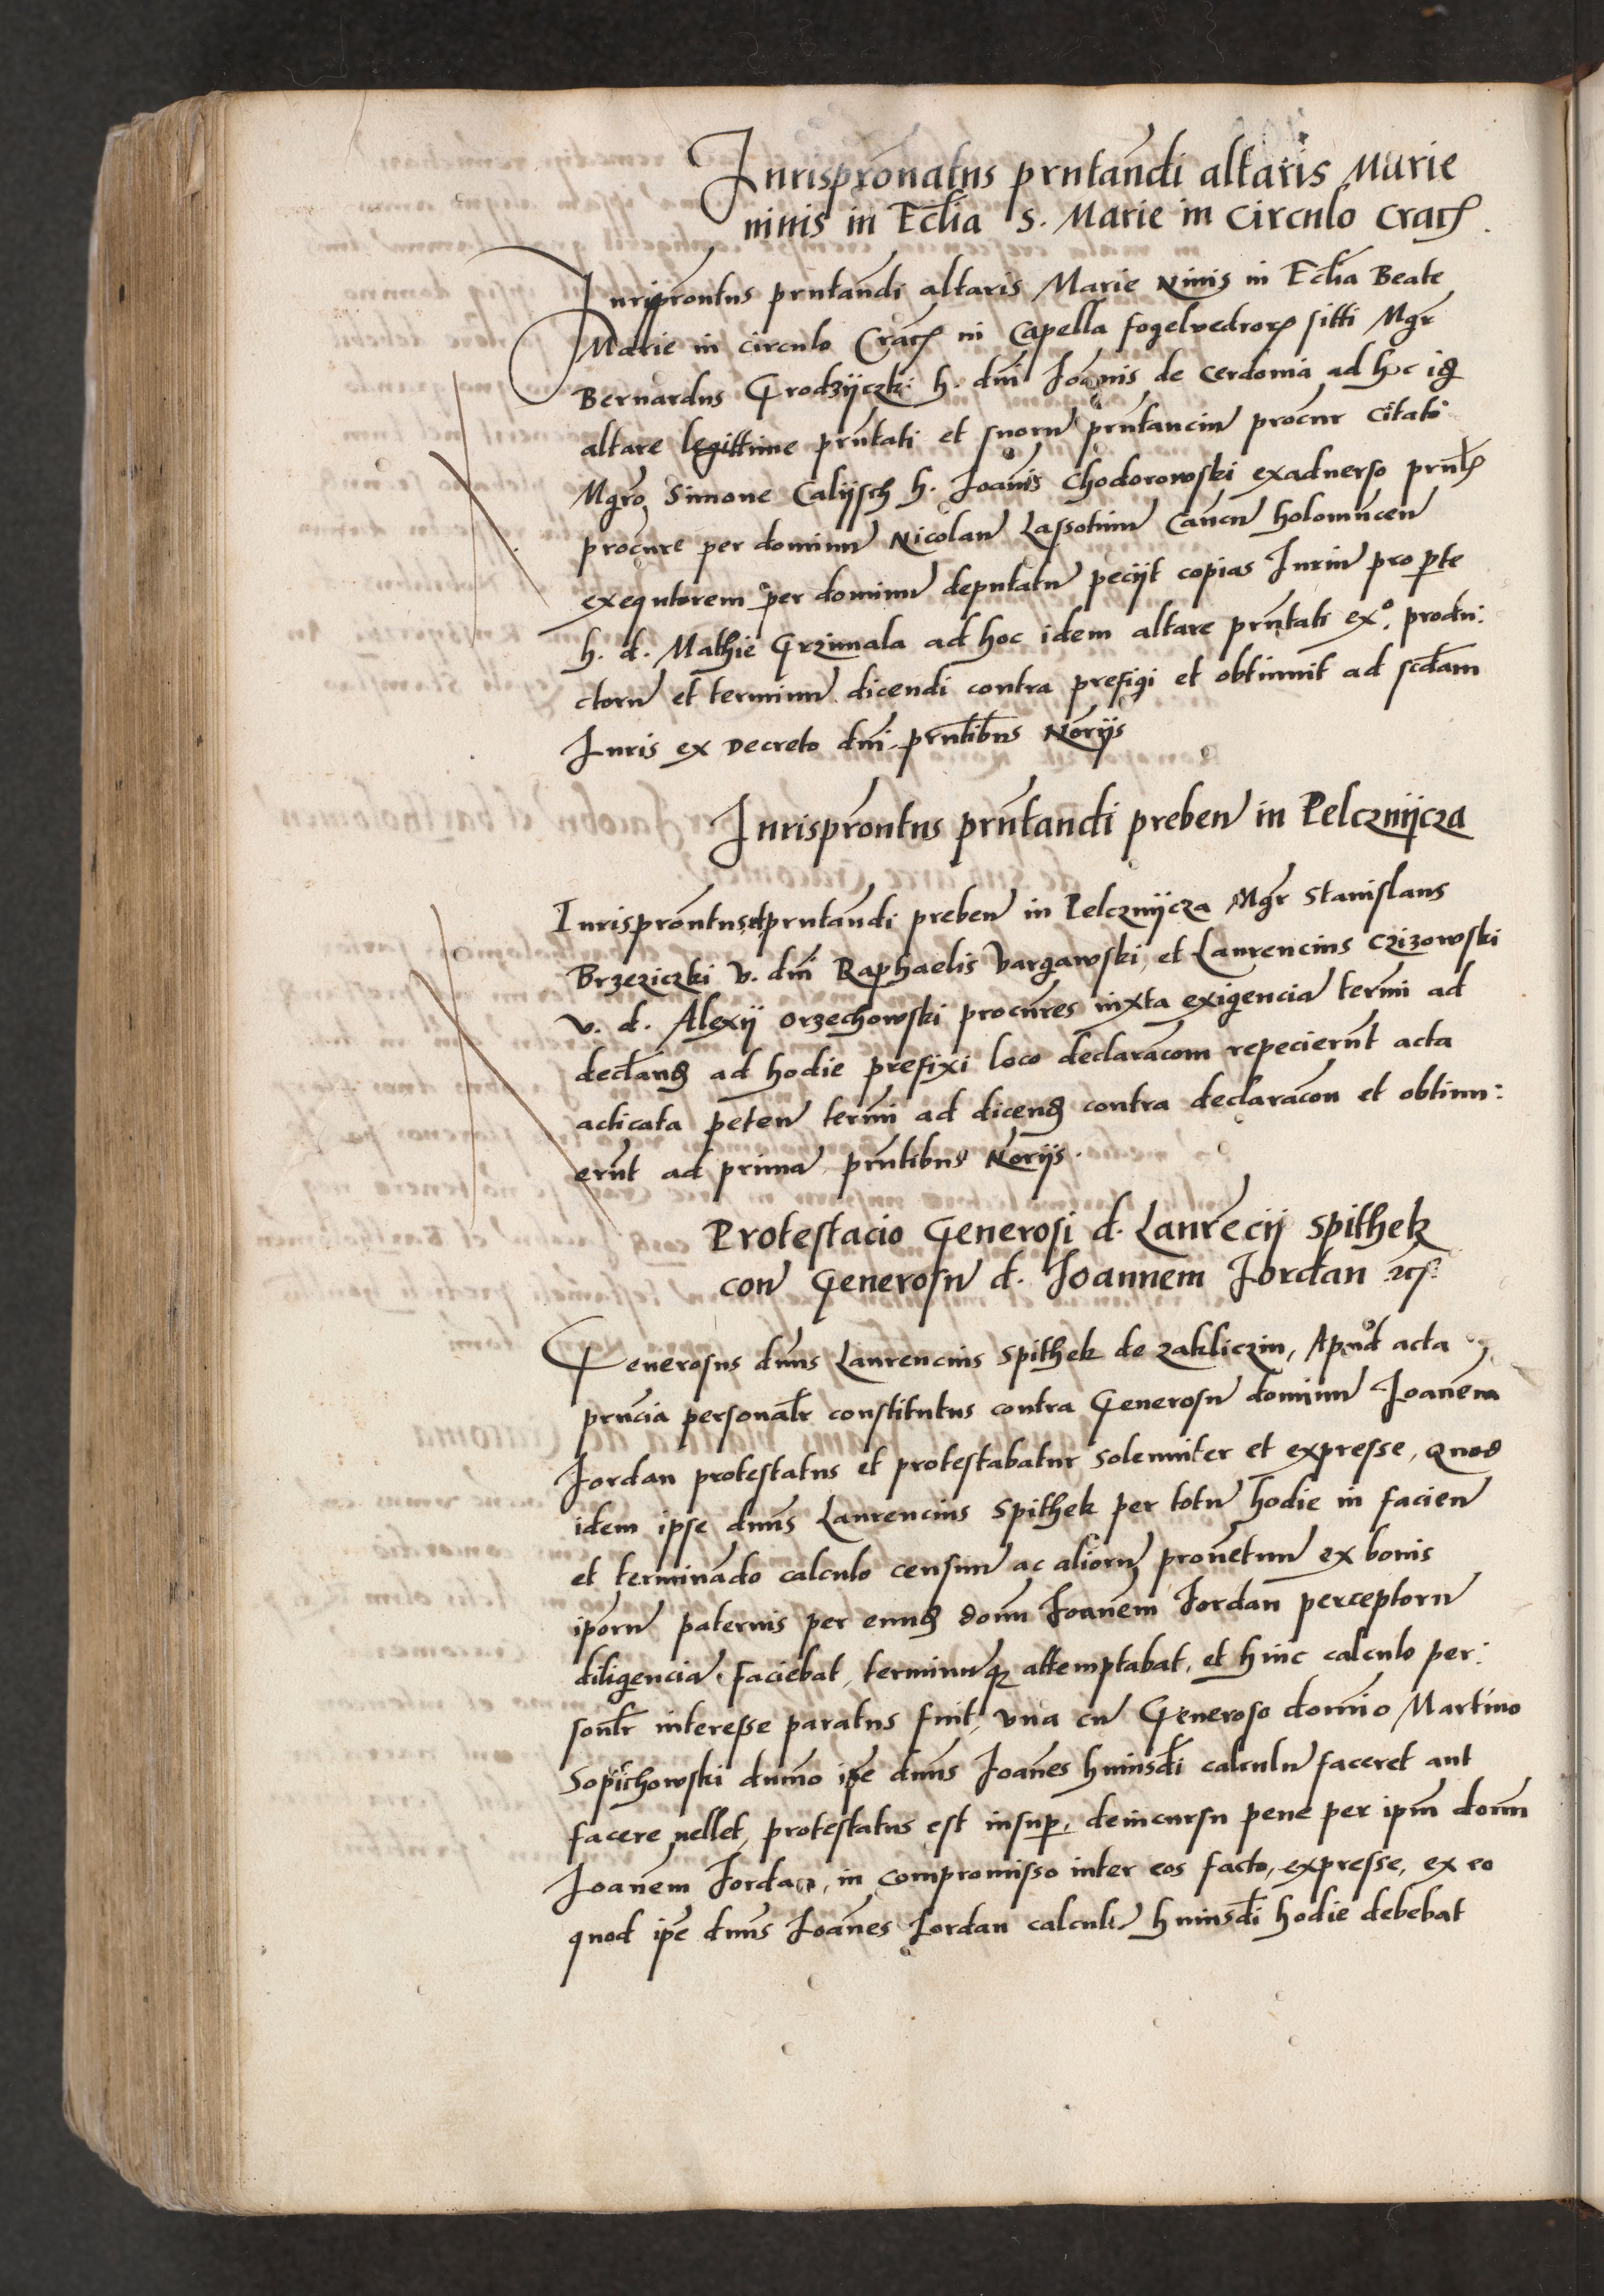 Jurispronatus prntandi altaris Marie
ninis in Ecclia S. Marie in Circulo Crac
Jurispronatus prntandi altaris Marie Ninis in Ecclia Beate
Marie in circulo Crac in Capella fogelvedror sitti Mgr
Bernardus Grodzijczki h. dni Joannis de Cerdonia ad hoc id
altare legittime prntati et suoru prntanciu procur citato
Mgro Simone Calijsch h. Joannis Chodorowski exadverso prnte
procure per dominu Nicolau Lassotinu Cancu holomucen
exequtorem per dominu deputatu pecijt copias Juriu pro parte
h. d. Mathie Grzimala ad hoc idem altare prntati exo. produ:
ctoru et terminu dicendi contra prefigi et obtinuit ad scdam
Juris ex Decreto dni prntibus Norijs
Jurisprontus prntandi preben in Pelcznijcza
Jurisprontus prntandi preben in Pelcznijcza Mgr Stanislaus
Brzeziczki v. dni Raphaelis Vargawski, et Laurencius Czizowski
v. d. Alexij Orzechowski procures iuxta exigencia termi ad
decland ad hodie prefixi loco declaracom repecierunt acta
acticata peten termi ad dicend contra declaracon et obtinu:
erunt ad prima prntibus Norijs.
Protestacio Generosi d. Laurecij Spithek
con Generosu d. Joannem Jordan etc:
Generosus dnus Laurencius Spithek de Zakliczin, Apud acta
prncia personalr constitutus contra Generosu dominu Joanem
Jordan protestatus et protestabatur solemniter et expresse, Quod
idem ipse dnus Laurencius Spithek per totu hodie in facien
et terminado calculo censuu ac alioru provetuu ex bonis
iporu paternis per eund domi Joanem Jordan perceptoru
diligencia faciebat, terminuq attemptabat, et hinc calculo per:
sonlr interesse paratus fuit, una cu Generoso domino Martino
Sopichowski dumo ipe dnus Joanes huiusdi calculu faceret aut
facere vellet, protestatus est insup, deincursu pene per ipm domi
Joanem Jordan, in compromisso inter eos facto, expresse, ex eo
quod ipe dnus Joanes Jordan calculu huiusdi hodie debebat